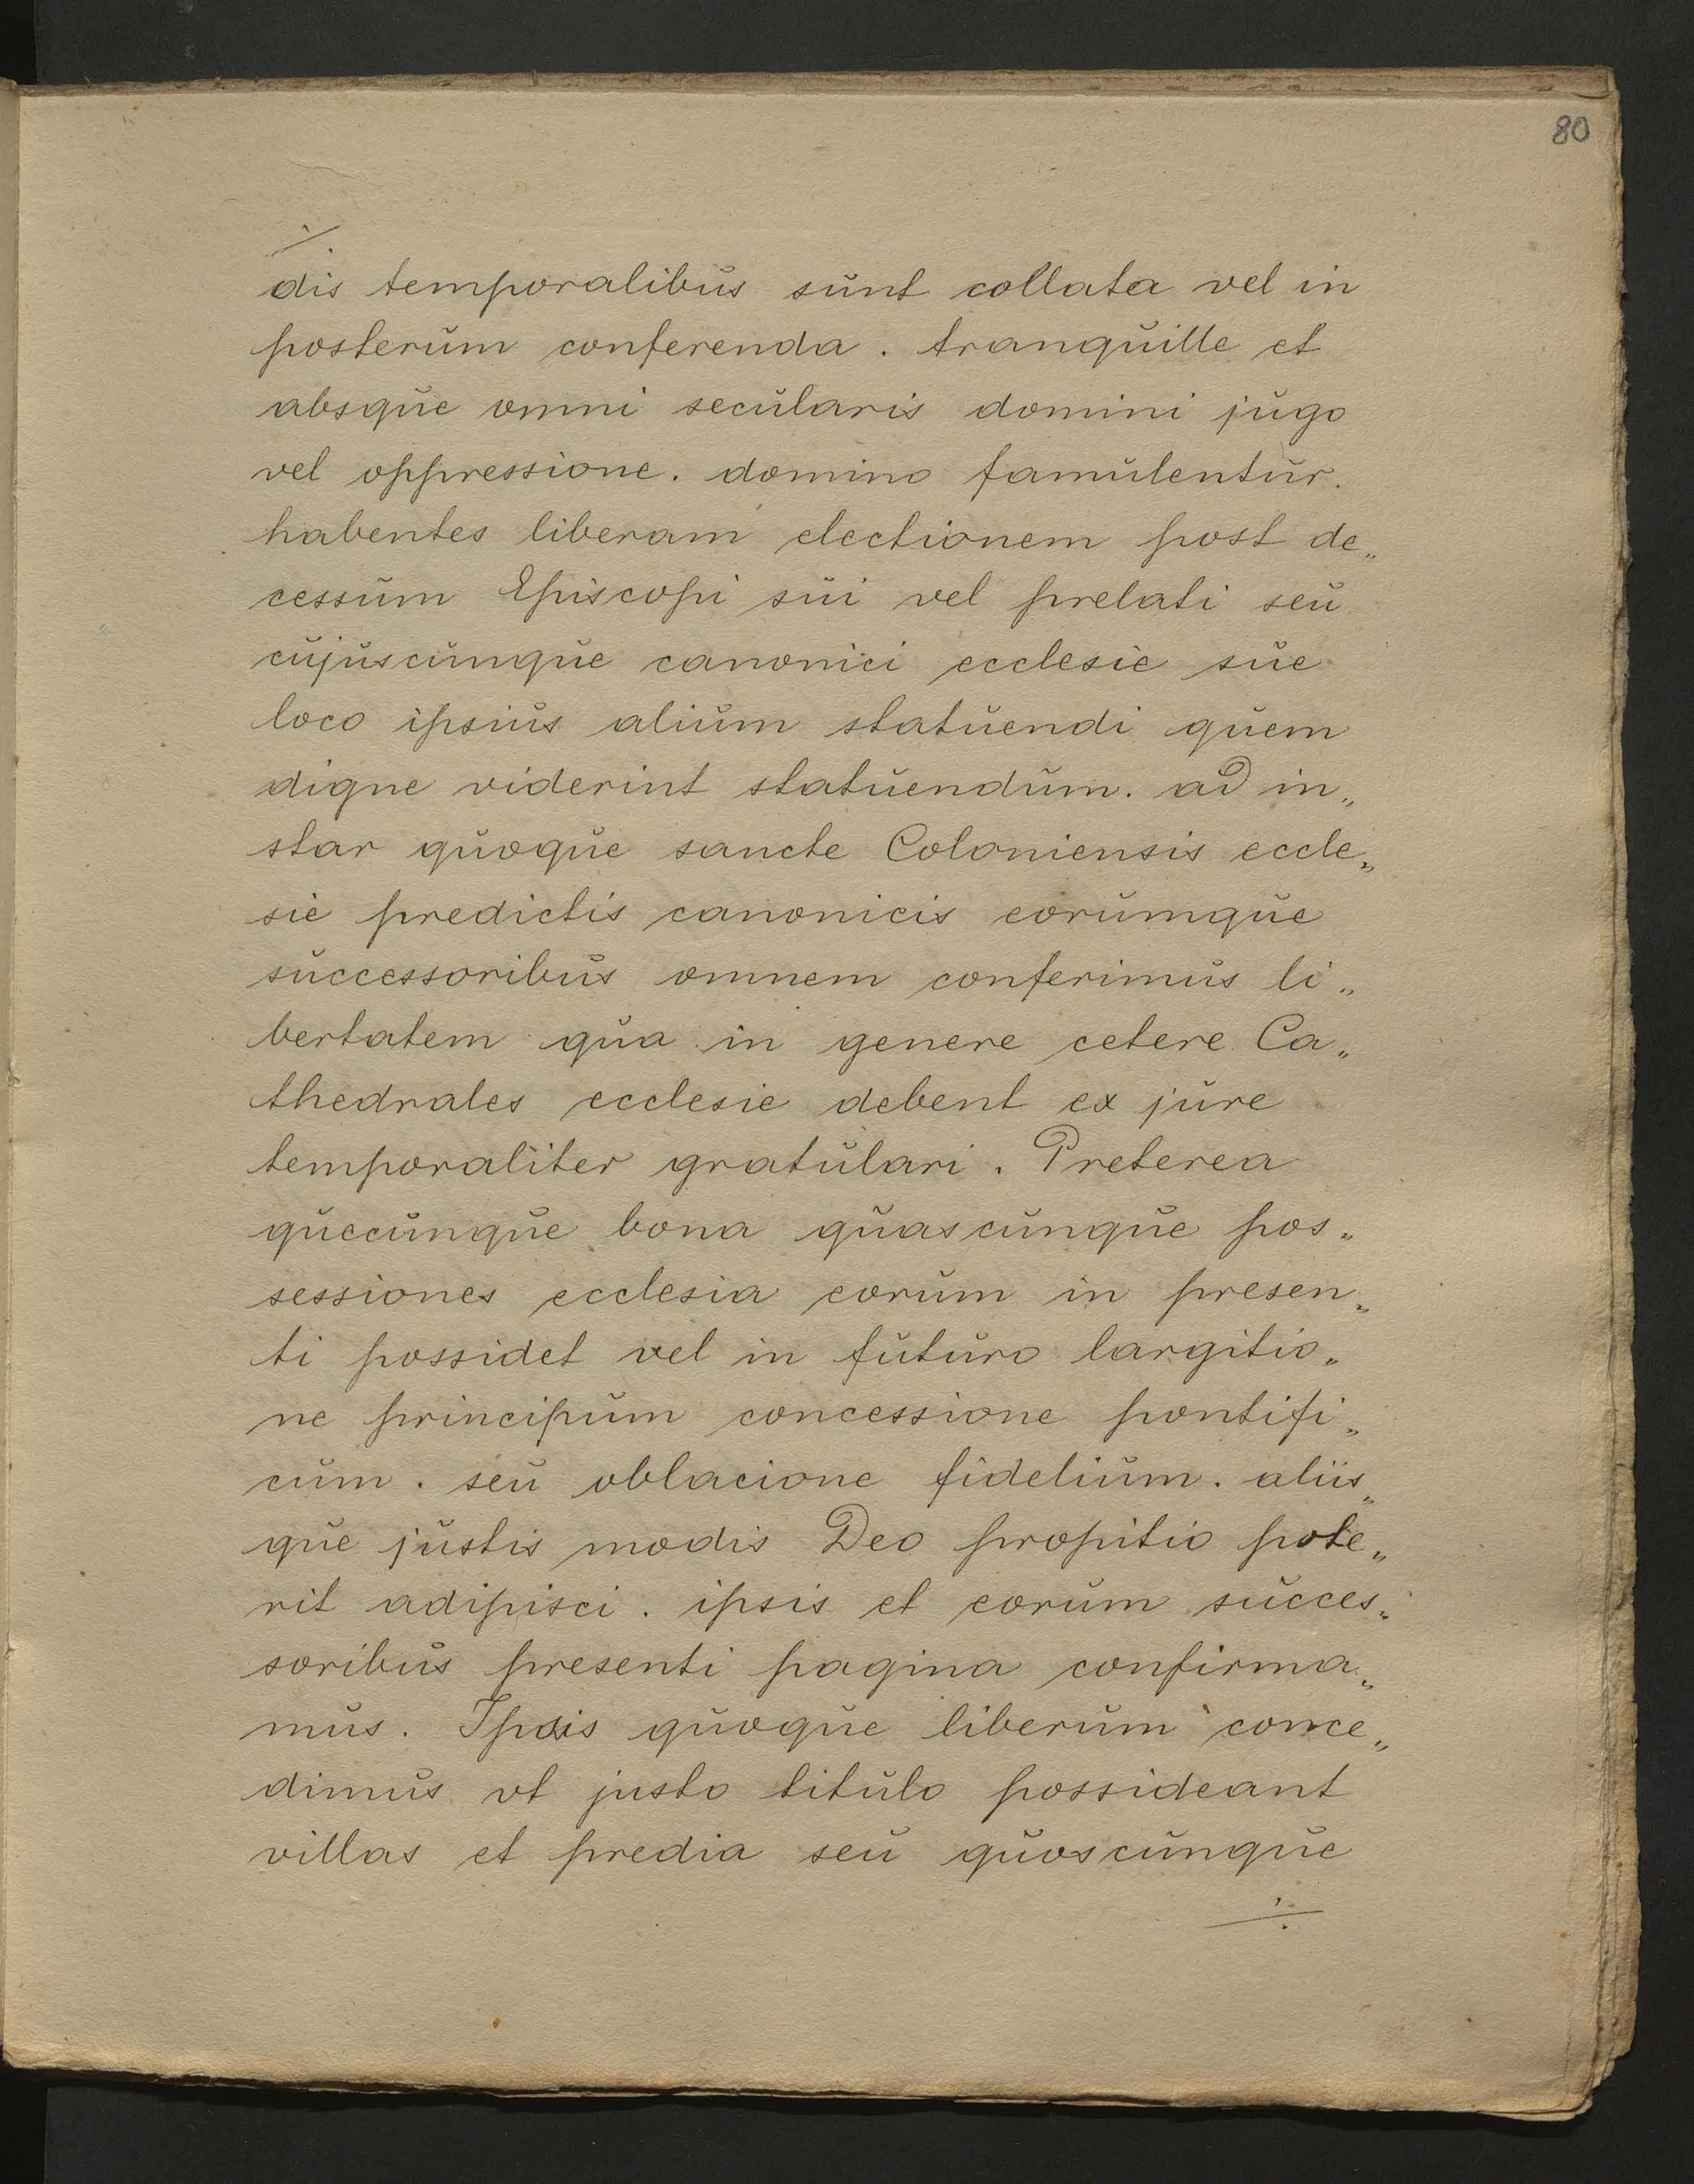 80
./.
dis temporalibus sunt collata vel in
posterum conferenda . tranquille et
absque omni secularis domini jugo
vel oppressione . domino famulentur .
habentes liberam electionem post de„
cessum Episcopi sui vel prelati seu
cujuscunque canonici ecclesie sue
loco ipsius alium statuendi quem
digne viderint statuendum . ad in„
star quoque sancte Coloniensis eccle„
sie predictis canonicis eorumque
successoribus omnem conferimus li„
bertatem qua in genere cetere Ca„
thedrales ecclesie debent ex jure
temporaliter gratulari . Preterea
quecunque bona quascunque pos„
sessiones ecclesia eorum in presen„
ti possidet vel in futuro largitio„
ne principum concessione pontifi„
cum . seu oblacione fidelium . aliis„
que justis modis Deo propitio pote„
rit adipisci . ipsis et eorum succes„
soribus presenti pagina confirma„
mus . Ipsis quoque liberum conce„
dimus vt justo titulo possideant
villas et predia seu quoscunque
./.